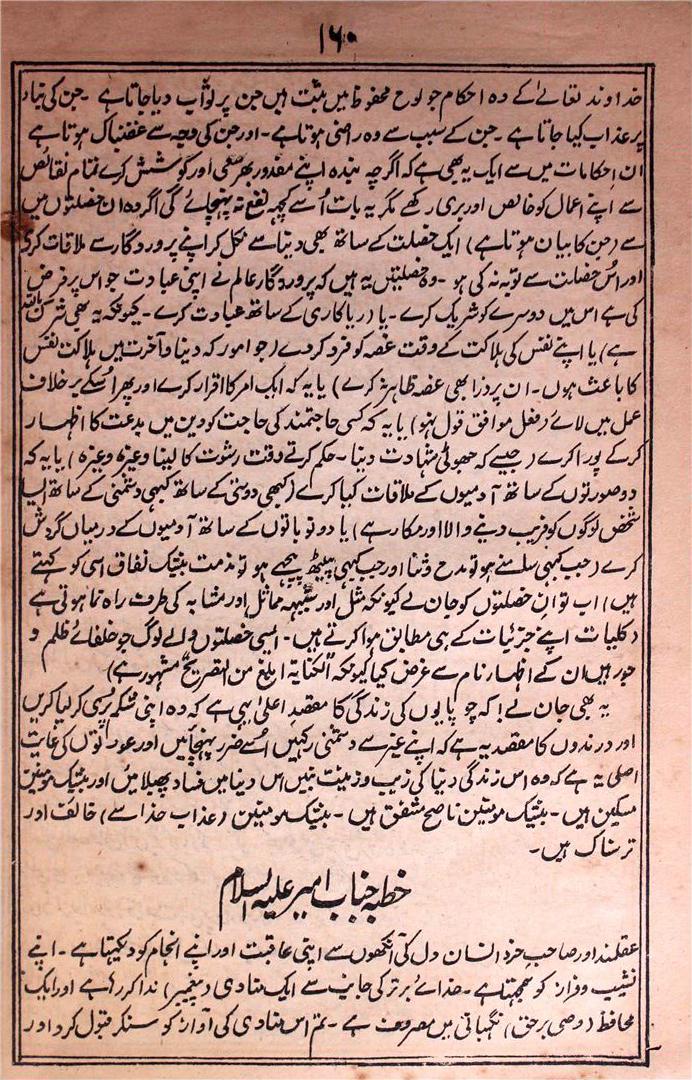 ۱۶۰
خداوند تعالےٰ کے وہ احکام جو لوح محفوظ میں ثبت ہیں جن پر ثواب دیا جاتا ہے ۔ جن کی بنیاد
پر عذاب کیا جاتا ہے ۔ جن کے سبب سے وہ راضی ہوتا ہے ۔ اور جن کی وجہ سے غضبناک ہوتا ہے
ان احکامات میں سے ایک یہ بھی ہے کہ اگرچہ بندہ اپنے مقدور بھر سعی اور کوشش کرے تمام نقائص
سے اپنے اعمال کو خالص اور بری رکھے مگر یہ بات اُسے کچھ نفع نہ پہنچائے گی اگر وہ ان خصلتوں میں
سے (جن کا بیان ہوتا ہے) ایک خصلت کے ساتھ بھی دنیا سے نکل کر اپنے پروردگار سے ملاقات کرے
اور اُس خصلت سے توبہ نہ کی ہو ۔ وہ خصلیتں یہ ہیں کہ پروردگار عالم نے اپنی عبادت جو اس پر فرض
کی ہے اس میں دوسرے کو شریک کرے ۔ یا (ریاکاری کے ساتھ عبادت کرے ۔ کیونکہ یہ بھی شرک باللہ
ہے) یا اپنے نفس کی ہلاکت کے وقت غصہ کو فرد کردے (جو امور کہ دنیا و آخرت میں ہلاکت نفس
کا باعث ہوں ۔ ان پر ذرا بھی غصہ ظاہر کرے) یا یہ کہ ایک امر کا اقرار کرے اور پھر اُسکے برخلاف
عمل میں لائے (فعل موافق قول نہو) یا یہ کہ کسی حاجتمند کی حاجت کو دین میں بدعت کا اظہار
کرکے پورا کرے (جیسے کہ جھوٹی شہادت دینا ۔ حکم کرتے وقت رشوت کا لینا وغیرہ وغیرہ) یا یہ کہ
دو صورتوں کے ساتھ آدمیوں کے ملاقات کیا کرے (کبھی دوستی کے ساتھ کبھی دشمنی کے ساتھ ایسا
شخص لوگوں کو فریب دینے والا اور مکار ہے) یا دو زبانوں کے ساتھ آدمیوں کے درمیان گردش
کرے (جب کبھی سامنے ہو تو مدح و ثنا اور جب کبھی پیٹھ پیچھے ہو تو مذمت بیشک نفاق اسی کو کہتے
ہیں) اب تو ان خصلتوں کو جان لے کیونکہ مثل اور شبیہہ مماثل اور مشابہ کی طرف راہ نما ہوتی ہے
(کلیات اپنے جزئیات کے ہی مطابق ہوا کرتے ہیں ۔ ایسی خصلتوں والے لوگ جو خلفائے ظلم و
جور ہیں ان کے اظہار نام سے غرض کیا کیونکہ الکنایۃ ابلغ من التصریح مشہور ہے)
یہ بھی جان لے! کہ چوپایوں کی زندگی کا مقصد اعلیٰ یہی ہے کہ وہ اپنی شکم پُرسی کرلیا کریں
اور درندوں کا مقصد یہ ہے کہ اپنے غیر سے دشمنی رکھیں اُسے ضرر پہنچائیں اور عورتوں کی غایت
اصلی یہ ہے کہ وہ اس زندگی دنیا کی زیب و زینت بنیں اس دنیا میں فساد پھیلائیں اور بیشک مومنین
مسکین ہیں ۔ بیشک مومنین ناصح مشفق ہیں ۔ بیشک مومنین (عذاب خدا سے) خائف اور
ترسناک ہیں ۔
خطبہ جناب امیر علیہ السلام
عقلمند اور صاحب خرد انسان دل کی آنکھوں سے اپنی عاقبت اور اپنے انجام کو دیکھتا ہے ۔ اپنے
نشیب و فراز کو سمجھتا ہے ۔ خدائے برتر کی جانب سے ایک منادی (پیغمبر) ندا کر رہا ہے اور ایک
محافظ (وصی برحق) نگہبانی میں مصروف ہے ۔ تم اس منادی کی آواز کو سنکر قبول کرو اور